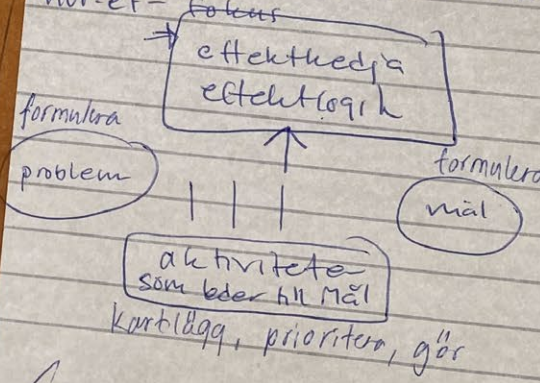 fokus
effektkedja
effektlogik
formulera
problem
formulera
mål
aktiviteter
som leder till mål
kartlägg, prioritera, gör